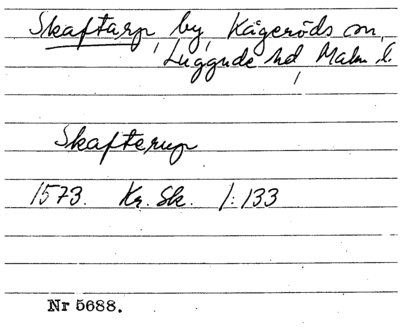 Skaftarp, by, Kågeröds sn,
Luggude hd, Malm. l.
Skafterup
1573. Kr. Sk. 1:133
Nr 5688.